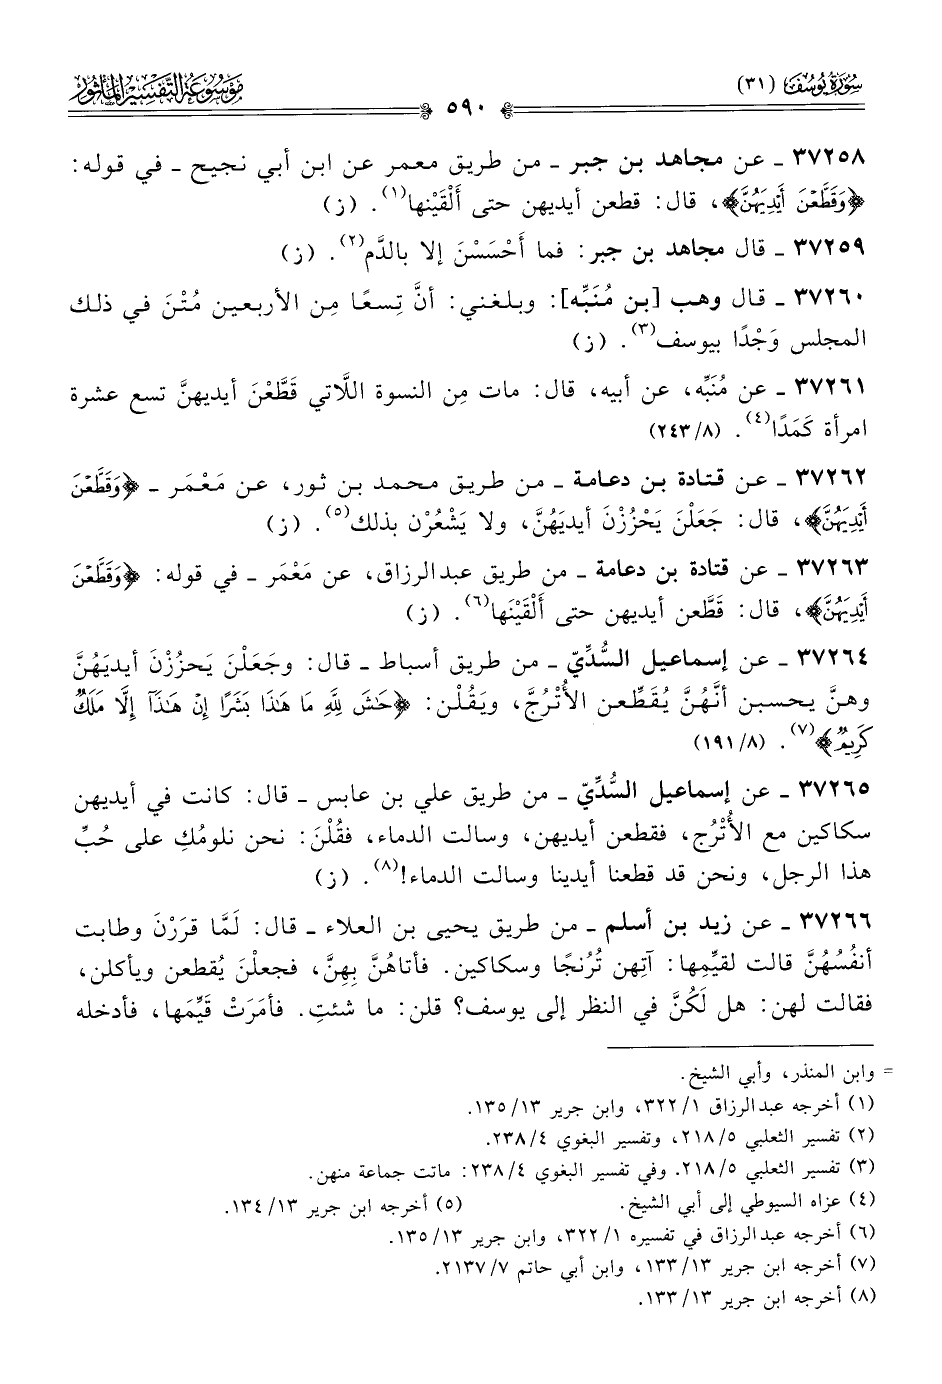 سُورَةُ يُوسُفَ (٣١)
مَوْسُوعَةُ التَّفْسِيرِ المَأْثُورِ
٥٩٠
٣٧٢٥٨ ـ عن مجاهد بن جبر ـ من طريق معمر عن ابن أبي نجيح ـ في قوله:
﴿وَقَطَّعْنَ أَيْدِيَهُنَّ﴾، قال: قطعن أيديهن حتى أَلْقَيْنها(١). (ز)
٣٧٢٥٩ ـ قال مجاهد بن جبر: فما أَحْسَسْنَ إلا بالدَّم(٢). (ز)
٣٧٢٦٠ ـ قال وهب [بن مُنَبِّه]: وبلغني: أنَّ تِسعًا مِن الأربعين مُتْنَ في ذلك
المجلس وَجْدًا بيوسف(٣). (ز)
٣٧٢٦١ ـ عن مُنَبِّه، عن أبيه، قال: مات مِن النسوة اللَّاتي قَطَّعْنَ أيديهنَّ تسع عشرة
امرأة كَمَدًا(٤). (٢٤٣/٨)
٣٧٢٦٢ ـ عن قتادة بن دعامة ـ من طريق محمد بن ثور، عن مَعْمَر ـ ﴿وَقَطَّعْنَ
أَيْدِيَهُنَّ﴾، قال: جَعَلْنَ يَحْزُزْنَ أيديَهُنَّ، ولا يَشْعُرْن بذلك(٥). (ز)
٣٧٢٦٣ ـ عن قتادة بن دعامة ـ من طريق عبدالرزاق، عن مَعْمَر ـ في قوله: ﴿وَقَطَّعْنَ
أَيْدِيَهُنَّ﴾، قال: قَطَّعن أيديهن حتى أَلْقَيْنَها(٦). (ز)
٣٧٢٦٤ ـ عن إسماعيل السُّدِّيّ ـ من طريق أسباط ـ قال: وجَعَلْنَ يَحزُزْنَ أيديَهُنَّ
وهنَّ يحسبن أنَّهُنَّ يُقَطِّعن الأُتْرُجَّ، ويَقُلْن: ﴿حَٰشَ لِلَّهِ مَا هَٰذَا بَشَرًا إِنْ هَٰذَآ إِلَّا مَلَكٌ
كَرِيمٌ﴾(٧). (١٩١/٨)
٣٧٢٦٥ ـ عن إسماعيل السُّدِّيّ ـ من طريق علي بن عابس ـ قال: كانت في أيديهن
سكاكين مع الأُتْرُج، فقطعن أيديهن، وسالت الدماء، فقُلْنَ: نحن نلومُكِ على حُبِّ
هذا الرجل، ونحن قد قطعنا أيدينا وسالت الدماء!(٨). (ز)
٣٧٢٦٦ ـ عن زيد بن أسلم ـ من طريق يحيى بن العلاء ـ قال: لَمَّا قرَرْنَ وطابت
أنفُسُهُنَّ قالت لقيِّمِها: آتِهن تُرُنجًا وسكاكين. فأتاهُنَّ بِهِنَّ، فجعلْنَ يُقطعن ويأكلن،
فقالت لهن: هل لَكُنَّ في النظر إلى يوسف؟ قلن: ما شئتِ. فأمَرَتْ قَيِّمَها، فأدخله
= وابن المنذر، وأبي الشيخ.
(١) أخرجه عبدالرزاق ٣٢٢/١، وابن جرير ١٣٥/١٣.
(٢) تفسير الثعلبي ٢١٨/٥، وتفسير البغوي ٢٣٨/٤.
(٣) تفسير الثعلبي ٢١٨/٥. وفي تفسير البغوي ٢٣٨/٤: ماتت جماعة منهن.
(٤) عزاه السيوطي إلى أبي الشيخ. (٥) أخرجه ابن جرير ١٣٤/١٣.
(٦) أخرجه عبدالرزاق في تفسيره ٣٢٢/١، وابن جرير ١٣٥/١٣.
(٧) أخرجه ابن جرير ١٣٣/١٣، وابن أبي حاتم ٢١٣٧/٧.
(٨) أخرجه ابن جرير ١٣٣/١٣.